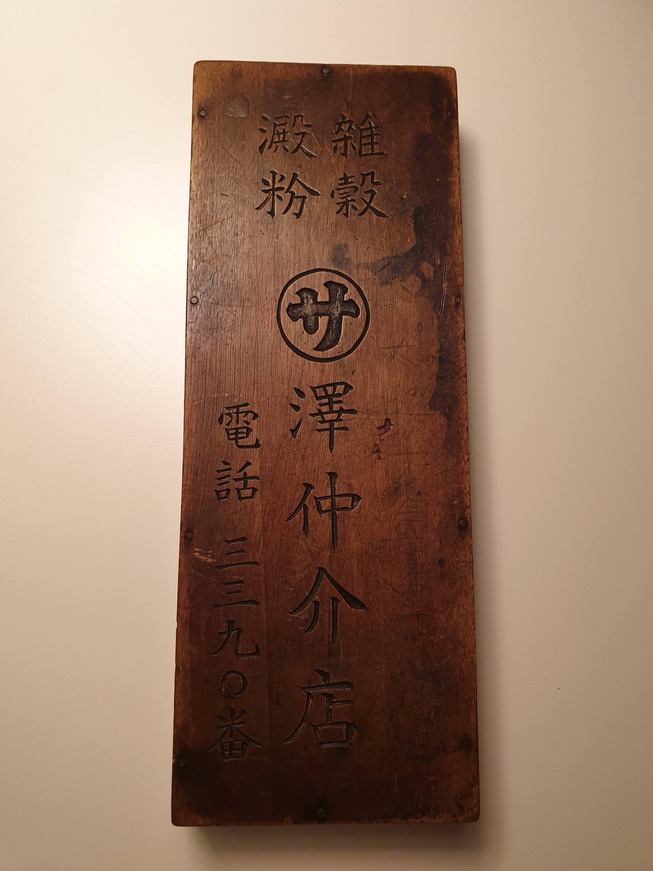 雜穀
澱粉
サ澤仲介店
電話三三九〇番